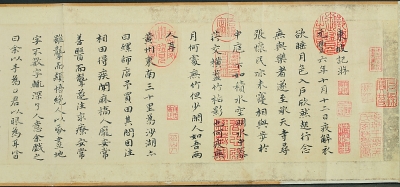 東坡記
元豐六年十月十二日夜解衣
欲睡月色入戶欣然起行念
無與樂者遂至承天寺尋
張懷民亦未寢相與步于
中庭庭下如積水空明水中藻
荇交橫蓋竹柏影也何夜無
月何處無竹但少閒人如吾兩
人耳
黃州東南三十里為沙湖亦
曰螺師店予買田其間因往
相田得疾聞麻橋人龐安常
善醫而聾遂往求療安常
雖聾而穎悟絕人以畫
字不數字輒深了人意余戲之
曰余以手為口君以眼為耳皆